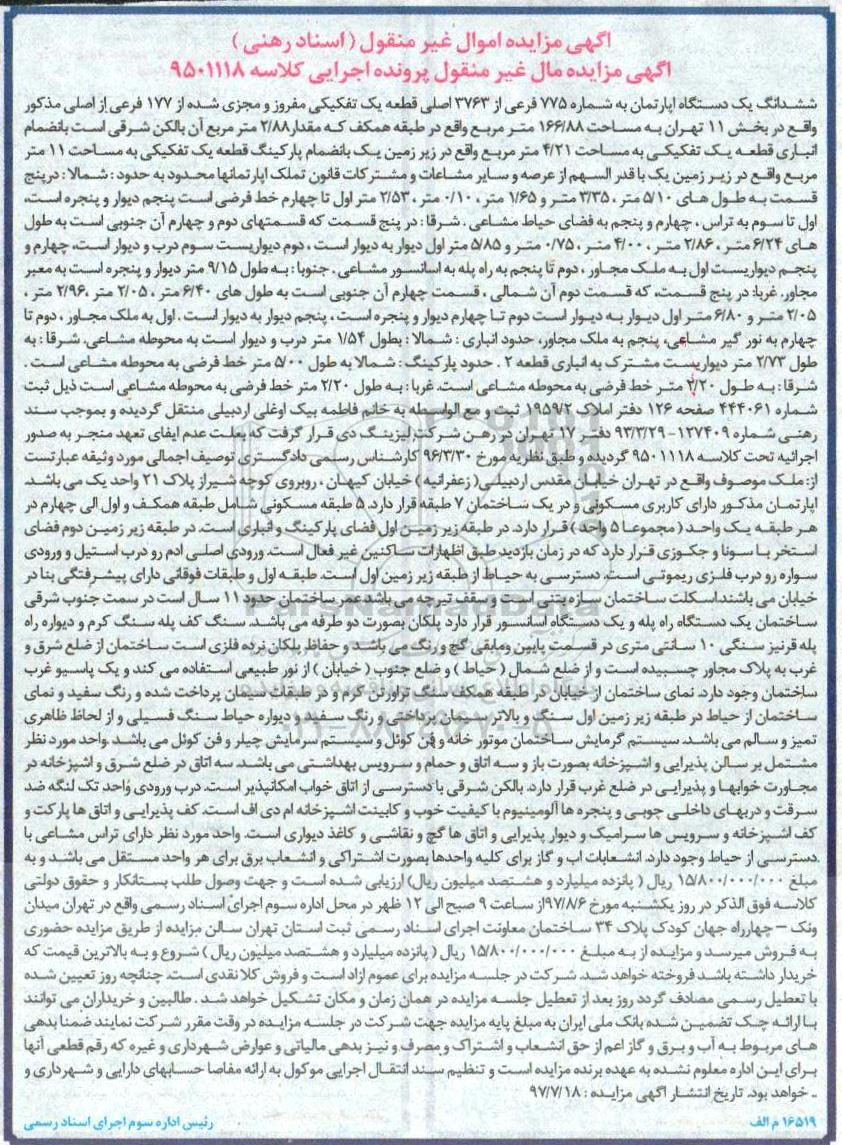 اگهی مزایده اموال غیر منقول (اسناد رهنی)
اگهی مزایده مال غیر منقول پرونده اجرایی کلاسه ۹۵۰۱۱۱۸
ششدانگ یک دستگاه اپارتمان به شماره ۷۷۵ فرعی از ۳۷۶۳ اصلی قطعه یک تفکیکی مفروز و مجزی شده از ۱۷۷ فرعی از اصلی مذکور
واقع در بخش ۱۱ تهران به مساحت ۱۶۶/۸۸ متر مربع واقع در طبقه همکف که مقدار ۲/۸۸ متر مربع آن بالکن شرقی است بانضمام
انباری قطعه یک تفکیکی به مساحت ۴/۲۱ متر مربع واقع در زیر زمین یک بانضمام پارکینگ قطعه یک تفکیکی به مساحت ۱۱ متر
مربع واقع در زیر زمین یک با قدر السهم از عرصه و سایر مشاعات و مشترکات قانون تملک اپارتمانها محدود به حدود : شمالا : درپنج
قسمت به طول های ۵/۱۰ متر ، ۳/۳۵ متر و ۱/۶۵ متر ، ۰/۱۰ متر ، ۲/۵۳ متر اول تا چهارم خط فرضی است پنجم دیوار و پنجره است،
اول تا سوم به تراس ، چهارم و پنجم به فضای حیاط مشاعی . شرقا : در پنج قسمت که قسمتهای دوم و چهارم آن جنوبی است به طول
های ۶/۲۴ متر ، ۲/۸۶ متر ، ۴/۰۰ متر ، ۰/۷۵ متر و ۵/۸۵ متر اول دیوار به دیوار است ، دوم دیواریست سوم درب و دیوار است، چهارم و
پنجم دیواریست اول به ملک مجاور ، دوم تا پنجم به راه پله به اسانسور مشاعی . جنوبا : به طول ۹/۱۵ متر دیوار و پنجره است به معبر
مجاور. غربا: در پنج قسمت، که قسمت دوم آن شمالی ، قسمت چهارم آن جنوبی است به طول های ۶/۴۰ متر ، ۲/۰۵ متر ،۲/۹۶ متر ،
۲/۰۵ متر و ۶/۸۰ متر اول دیوار به دیوار است دوم تا چهارم دیوار و پنجره است ، پنجم دیوار به دیوار است . اول به ملک مجاور ، دوم تا
چهارم به نور گیر مشاعی، پنجم به ملک مجاور، حدود انباری : شمالا : بطول ۱/۵۴ متر درب و دیوار است به محوطه مشاعی، شرقا : به
طول ۲/۷۳ متر دیواریست مشترک به انباری قطعه ۲ . حدود پارکینگ : شمالا به طول ۵/۰۰ متر خط فرضی به محوطه مشاعی است .
شرقا : به طول ۲/۲۰ متر خط فرضی به محوطه مشاعی است. غربا : به طول ۲/۲۰ متر خط فرضی به محوطه مشاعی است ذیل ثبت
شماره ۴۴۴۰۶۱ صفحه ۱۲۶ دفتر املاک ۱۹۵۹/۲ ثبت و مع الواسطه به خانم فاطمه بیک اوغلی اردبیلی منتقل گردیده و بموجب سند
رهنی شماره ۱۲۷۴۰۹-۹۳/۳/۲۹ دفتر ۱۷ تهران در رهن شرکت لیزینگ دی قرار گرفت که بعلت عدم ایفای تعهد منجر به صدور
اجرائیه تحت کلاسه ۹۵۰۱۱۱۸ گردیده و طبق نظریه مورخ ۹۶/۳/۳۰ کارشناس رسمی دادگستری توصیف اجمالی مورد وثیقه عبارتست
از: ملک موصوف واقع در تهران خیابان مقدس اردبیلی( زعفرانیه ) خیابان کیهان ، روبروی کوچه شیراز پلاک ۲۱ واحد یک می باشد.
اپارتمان مذکور دارای کاربری مسکونی و در یک ساختمان ۷ طبقه قرار دارد. ۵ طبقه مسکونی شامل طبقه همکف و اول الی چهارم در
هر طبقه یک واحد ( مجموعا ۵ واحد ) قرار دارد. در طبقه زیر زمین اول فضای پارکینگ و انباری است. در طبقه زیر زمین دوم فضای
استخر با سونا و جکوزی قرار دارد که در زمان بازدید طبق اظهارات ساکنین غیر فعال است. ورودی اصلی ادم رو درب استیل و ورودی
سواره رو درب فلزی ریموتی است. دسترسی به حیاط از طبقه زیر زمین اول است. طبقه اول و طبقات فوقانی دارای پیشرفتگی بنا در
خیابان می باشند.اسکلت ساختمان سازه بتنی است و سقف تیرچه می باشد عمر ساختمان حدود ۱۱ سال است در سمت جنوب شرقی
ساختمان یک دستگاه راه پله و یک دستگاه اسانسور قرار دارد پلکان بصورت دو طرفه می باشد. سنگ کف پله سنگ کرم و دیواره راه
پله قرنیز سنگی ۱۰ سانتی متری در قسمت پایین ومابقی گچ و رنگ می باشد و حفاظ پلکان نرده فلزی است ساختمان از ضلع شرق و
غرب به پلاک مجاور چسبیده است و از ضلع شمال ( حیاط ) و ضلع جنوب ( خیابان ) از نور طبیعی استفاده می کند و یک پاسیو غرب
ساختمان وجود دارد. نمای ساختمان از خیابان در طبقه همکف سنگ تراورتن کرم و در طبقات سیمان پرداخت شده و رنگ سفید و نمای
ساختمان از حیاط در طبقه زیر زمین اول سنگ و بالاتر سیمان پرداختی و رنگ سفید و دیواره حیاط سنگ فسیلی و از لحاظ ظاهری
تمیز و سالم می باشد. سیستم گرمایش ساختمان موتور خانه و فن کوئل و سیستم سرمایش چیلر و فن کوئل می باشد .واحد مورد نظر
مشتمل بر سالن پذیرایی و اشپزخانه بصورت باز و سه اتاق و حمام و سرویس بهداشتی می باشد. سه اتاق در ضلع شرق و اشپزخانه در
مجاورت خوابها و پذیرایی در ضلع غرب قرار دارد. بالکن شرقی با دسترسی از اتاق خواب امکانپذیر است. درب ورودی واحد تک لنگه ضد
سرقت و دربهای داخلی چوبی و پنجره ها آلومینیوم با کیفیت خوب و کابینت اشپزخانه ام دی اف است. کف پذیرایی و اتاق ها پارکت و
کف اشپزخانه و سرویس ها سرامیک و دیوار پذیرایی و اتاق ها گچ و نقاشی و کاغذ دیواری است. واحد مورد نظر دارای تراس مشاعی با
دسترسی از حیاط وجود دارد. انشعابات اب و گاز برای کلیه واحدها بصورت اشتراکی و انشعاب برق برای هر واحد مستقل می باشد و به
مبلغ ۱۵/۸۰۰/۰۰۰/۰۰۰ ریال ( پانزده میلیارد و هشتصد میلیون ریال) ارزیابی شده است و جهت وصول طلب بستانکار و حقوق دولتی
کلاسه فوق الذکر در روز یکشنبه مورخ ۹۷/۸/۶از ساعت ۹ صبح الی ۱۲ ظهر در محل اداره سوم اجرای اسناد رسمی واقع در تهران میدان
ونک – چهارراه جهان کودک پلاک ۳۴ ساختمان معاونت اجرای اسناد رسمی ثبت استان تهران سالن مزایده از طریق مزایده حضوری
به فروش میرسد و مزایده از به مبلغ ۱۵/۸۰۰/۰۰۰/۰۰۰ ریال ( پانزده میلیارد و هشتصد میلیون ریال ) شروع و به بالاترین قیمت که
خریدار داشته باشد فروخته خواهد شد. شرکت در جلسه مزایده برای عموم ازاد است و فروش کلا نقدی است. چنانچه روز تعیین شده
با تعطیل رسمی مصادف گردد روز بعد از تعطیل جلسه مزایده در همان زمان و مکان تشکیل خواهد شد . طالبین و خریداران می توانند
با ارائه چک تضمین شده بانک ملی ایران به مبلغ پایه مزایده جهت شرکت در جلسه مزایده در وقت مقرر شرکت نمایند ضمنا بدهی
های مربوط به آب و برق و گاز اعم از حق انشعاب و اشتراک و مصرف و نیز بدهی مالیاتی و عوارض شهرداری و غیره که رقم قطعی آنها
برای این اداره معلوم نشده به عهده برنده مزایده است و تنظیم سند انتقال اجرایی موکول به ارائه مفاصا حسابهای دارایی و شهرداری و
.. خواهد بود. تاریخ انتشار اگهی مزایده : ۹۷/۷/۱۸
۱۶۵۱۹ م الف
رئیس اداره سوم اجرای اسناد رسمی
ParsNamadData